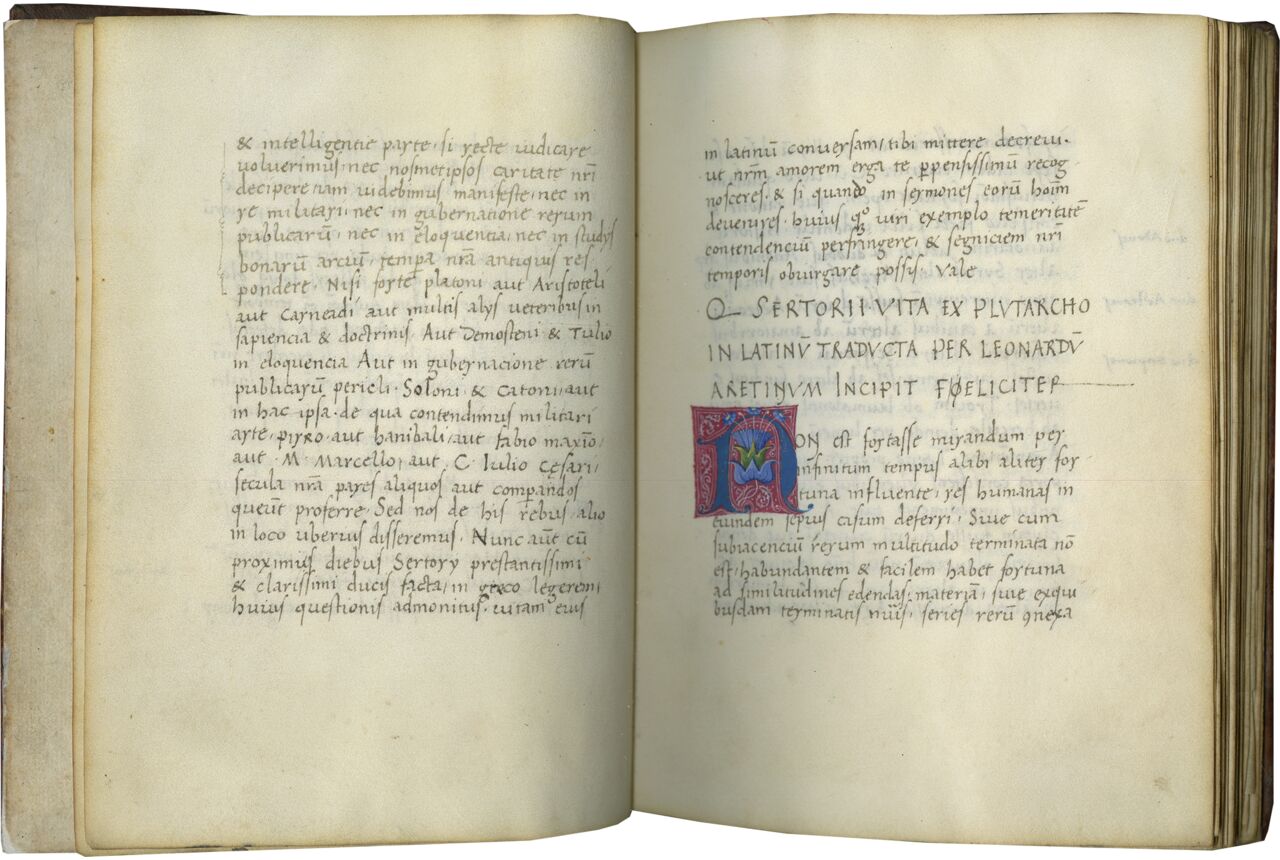 & intelligentie parte, si recte iudicare
uoluerimus, nec nosmetipsos caritate nr̄i
decipere nam uidebimus manifeste, nec in
re militari, nec in gubernatione rerum
publicarū, nec in eloquentia, nec in studÿs
bonarū arciū, tempa nr̄a antiquis res
pondere. Nisi forte platoni aut Aristoteli
aut Carneadi aut multis alÿs ueteribus in
sapiencia & doctrinis. Aut Demosteni & Tulio
in eloquencia Aut in gubernacione rerū
publicarū pericli. Soloni. & Catoni, aut
in hac ipsa. de qua contendimus militari
arte, pirro aut hanibali, aut fabio maxīo,
aut M. Marcello, aut C. Iulio Cęsari,
secula nr̄a pares aliquos aut compandos
queūt proferre. Sed nos de his rebus, alio
in loco uberius disseremus. Nunc aūt cū
proximis diebus Sertorÿ prestantissimi
& clarissimi ducis facta, in greco legerem,
huius questionis admonitus. uitam eius
in latinū conuersam, tibi mittere decreui.
ut nr̄m amorem erga te ꝓpensissimū recog
nosceres. & si quando in sermones eorū hoīm
deuenires. huius qͦ uiri exemplo temeritatē
contendenciū perfringere, & segniciem nr̄i
temporis obiurgare possis. Vale
Q SERTORII VITA EX PLVTARCHO
IN LATINV̄ TRADVCTA PER LEONARDV̄
ARETINVM INCIPIT FOELICITER
NON est fortasse mirandum per
infinitum tempus alibi aliter for
tuna influente, res humanas in
eundem sepius casum deferri, Siue cum
subiacenciū rerum multitudo terminata nō
est, habundantem & facilem habet fortuna
ad similitudines edendas, materiā, siue exqui
busdam terminatis nūis, series rerū ꝯnexa